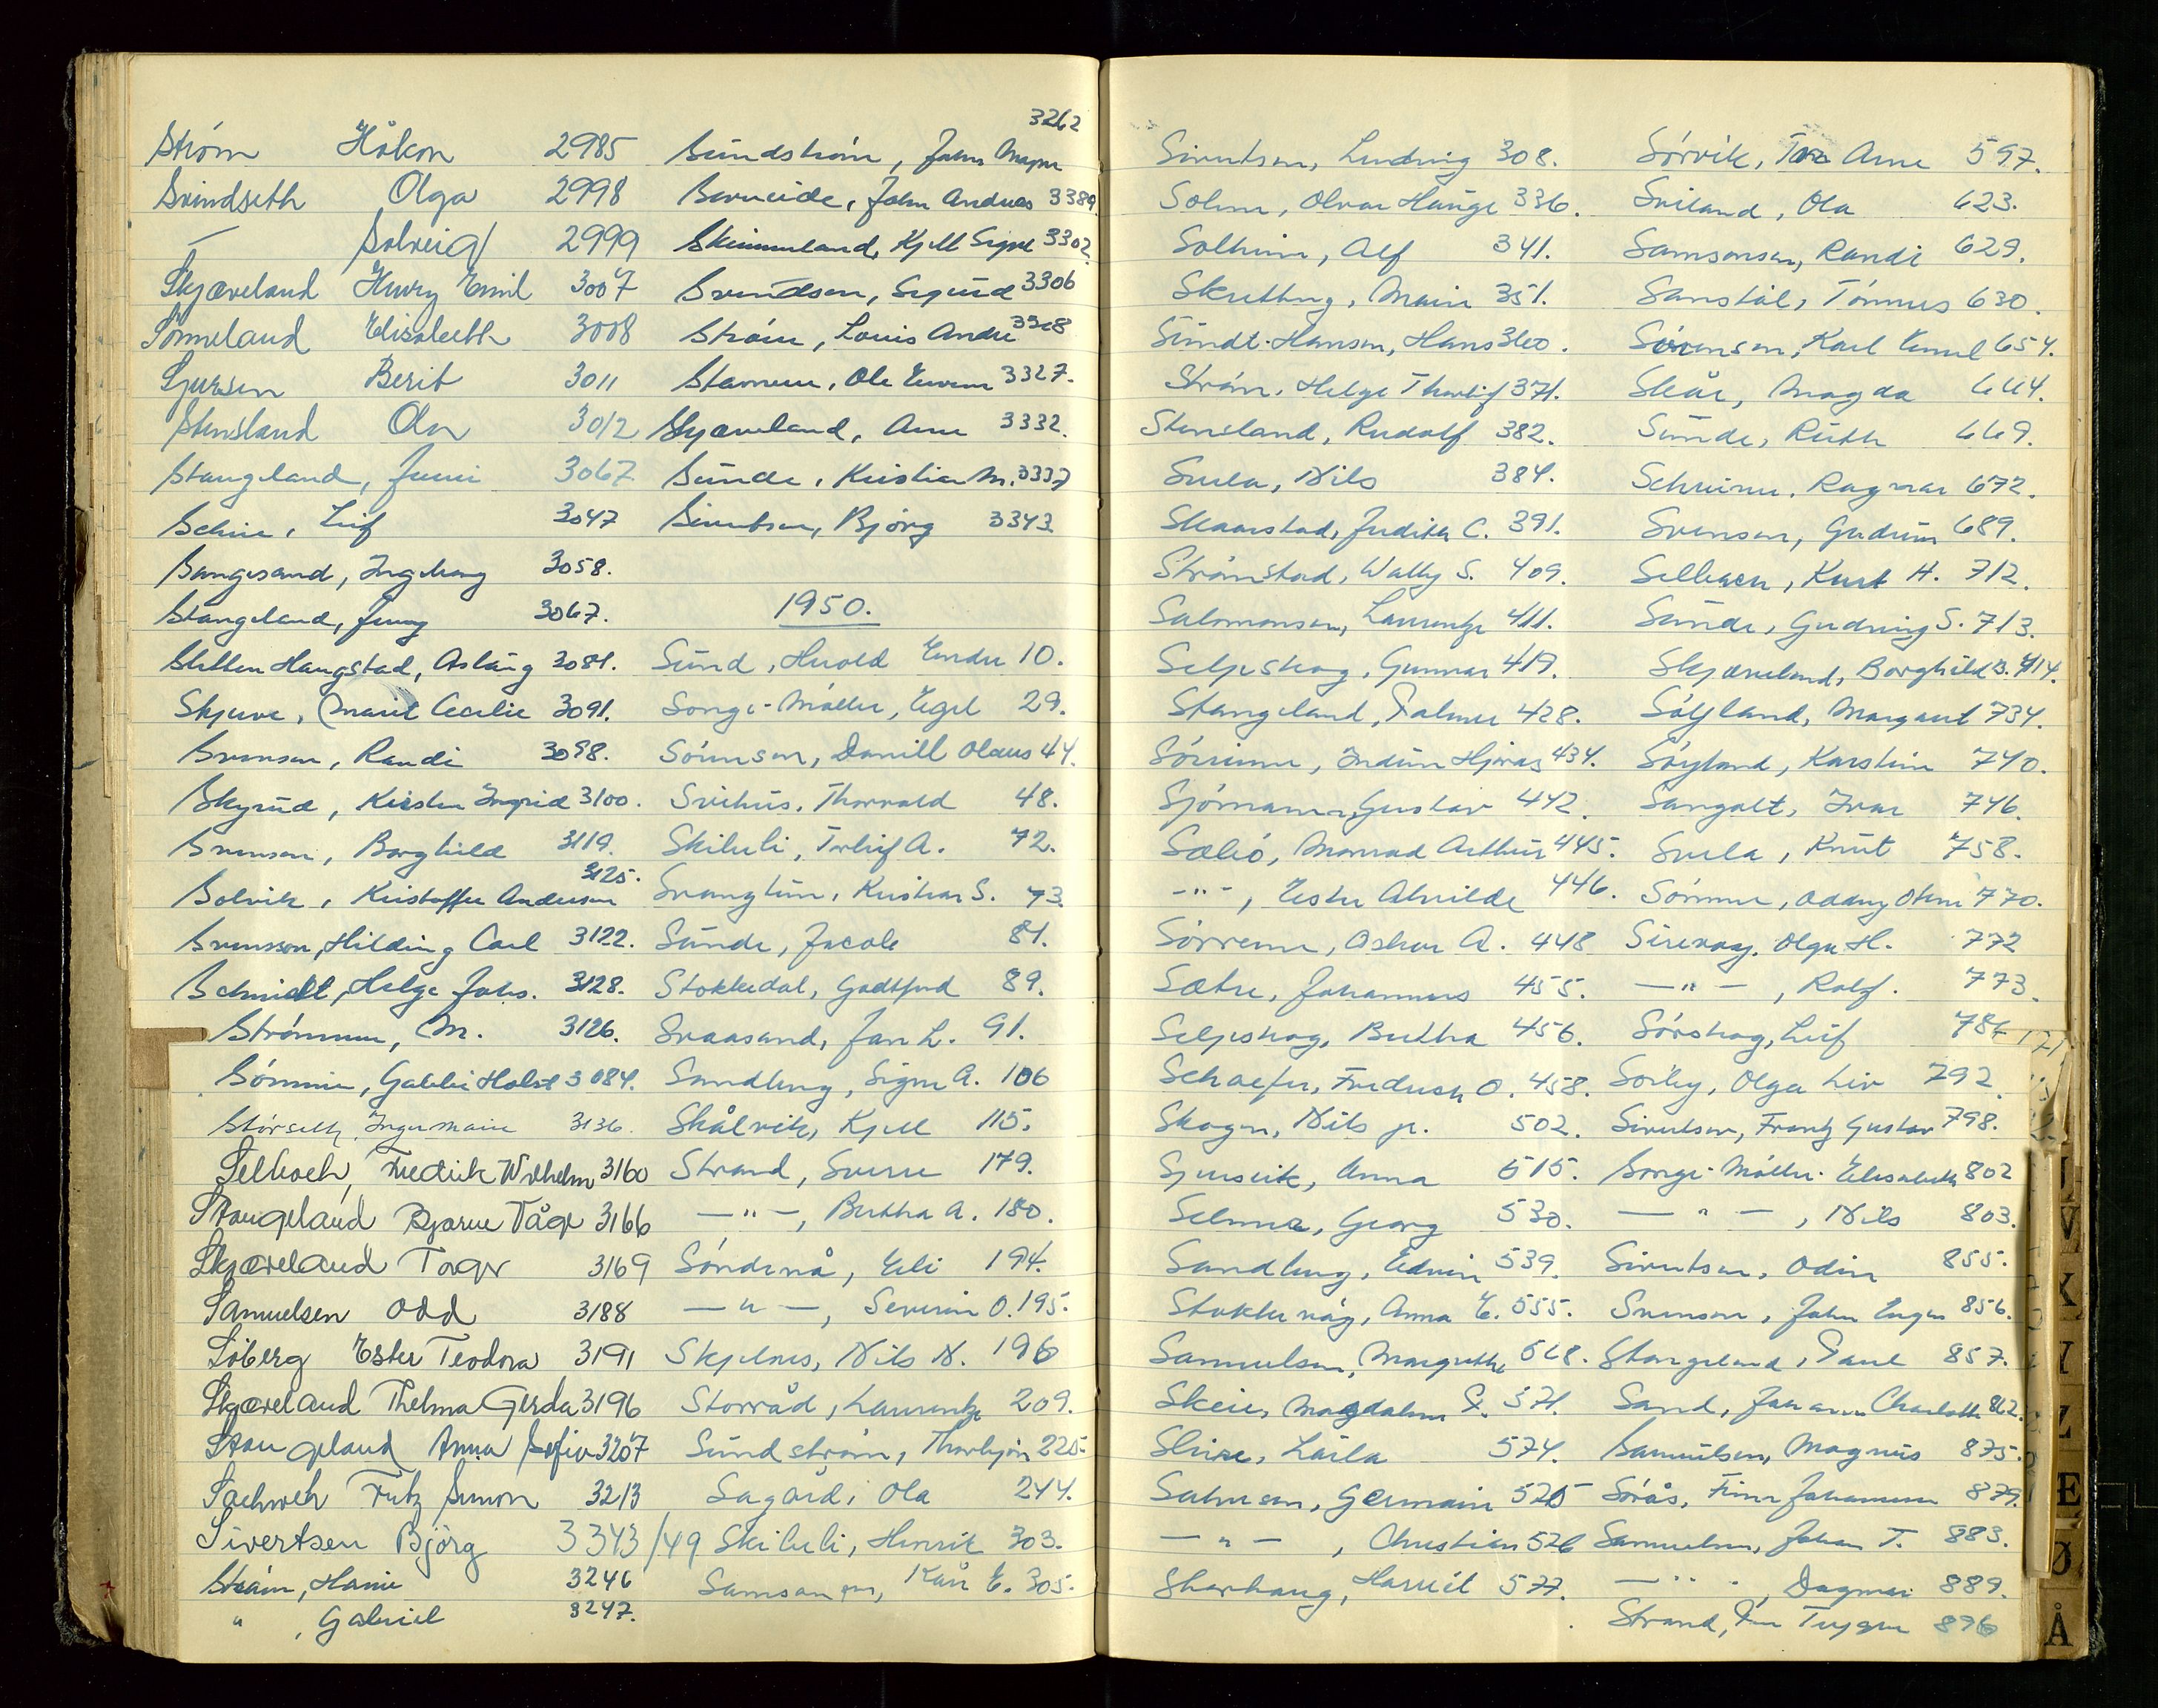 Strøm Håkon 2985
Svindseth Olga 2998
— Solveig 2999
Skjæveland Henry Emil 3007
Sømmeland Elisabeth 3008
Sjursen Berit 3011
Stensland Ola 3012
Stangeland, Jenni 3067
Schie, Leif 3047
Sangesand, Ingeborg 3058.
Stangeland, Jenny 3067.
Sletten Haugstad, Aslaug 3081.
Skjerve, Marie Cecilie 3091.
Svensen, Randi 3098.
Skyrud, Kirsten Ingrid 3100.
Svensen, Borghild 3119.
Solvik, Kristoffer Anderson 3125.
Svensson, Hilding Carl 3122.
Schmidt, Helge Johs. 3128.
Strømmen, M. 3126.
Sømme, Gabbi Holst 3084.
Størseth, Inger Marie 3136.
Sellvach, Fredrik Wilhelm 3160
Stangeland Bjarne Våge 3166
Skjæveland Torger 3169
Samuelsen Odd 3188
Søberg Ester Teodora 3191
Skjæveland Thelma Gerda 3196
Stangeland Anna Sofie 3207
Sachweh Fritz Simon 3213
Sivertsen Bjørg 3343/49
Strøm, Hanne 3246
" , Gabriel 3247.
3262
Sundstrøm, John Magne
Berveide, John Andreas 3389
Skimmeland, Kjell Signe 3302
Svendsen, Sigurd 3306
Strøm, Louis Andre 3318
Stamnes, Ole 3327.
Skjæveland, Arne 3332.
Sunde, Kristian M. 3337
Sivertsen, Bjørg 3343
1950.
Sund, Herold Endre 10.
Songe-Møller, Egil 29.
Sørensen, Daniell Olaus 44.
Svihus, Thorvald 48.
Skibeli, Torleif A. 72.
Svangtun, Kristian S. 73.
Sunde, Jacob 81.
Stokkedal, Godtfred 89.
Svaasand, Jan L. 91.
Sandberg, Signe A. 106
Skålvik, Kjell 115.
Strand, Sverre 179.
— " —, Bertha A. 180.
Søndenå, Eli 194.
— " —, Severin O. 195.
Skjelnes, Nils N. 196
Storråd, Laurentze 209.
Sundstrøm, Thorbjørn 225.
Sagård, Ola 244.
Skibeli, Henrik 303.
Samsonsen, Kåre E. 305.
Sivertsen, Ludvig 308.
Solem, Olvar Hauge 336.
Solheim, Alf 341.
Skretting, Marie 351.
Sundt-Hansen, Hans 360.
Strøm, Helge Thorleif 371.
Stensland, Rudolf 382.
Suela, Nils 384.
Skaarstad, Judith C. 391.
Strømstad, Wally S. 409.
Salomonsen, Laurentze 411.
Seljeskog, Gunnar 417.
Stangeland, Palmer 428.
Sørensen, Hjørdis 434.
Sjømann, Gustav 442.
Sælió, Konrad Arthur 445.
— " —, Ester Alvilde 446.
Sørreime, Oskar A. 448
Sætre, Johannes 455.
Seljeskog, Bertha 456.
Schaefer, Frederich O. 458.
Skogen, Nils jr. 502.
Sjurseik, Anna 515.
Selmer, Georg 530.
Sandberg, Edvin 539.
Stokkevåg, Anna E. 555.
Samuelsen, Margrethe 568.
Skeie, Magdalene S. 571.
Skeie, Laila 574.
Salmesen, Germain 575
— " —, Christian 576
Skarhaug, Harriet 577.
Sørvik, Arne 597.
Sviland, Ola 623.
Samsonsen, Randi 629.
Sanstøl, Tønnes 630.
Sørensen, Karl Emil 654.
Skår, Magda 664.
Sunde, Ruth 669.
Schreiner, Ragnar 672.
Svensen, Gudrun 689.
Sellvach, Kurt H. 712.
Sunde, Gudrun S. 713.
Skjæveland, Borghild B. 714.
Søyland, Margaret 734.
Søyland, Karsten 740.
Sangolt, Ivar 746.
Suela, Knut 758.
Sømme, Oddny Othne 770.
Sirevaag, Olga H. 772
— " —, Rolf. 773.
Sørskog, Leif 786
Sørby, Olga Liv 792
Sivertsen, Frantz Gustav 798.
Songe-Møller Elisabeth 802
— " —, Nils 803.
Sivertsen, Odin 855.
Svensen, John Inger 856.
Stangeland, Paul 857.
Sand, Johanne Charlotte 862.
Samuelsen, Magnus 875.
Sørås, Finn Johannesen 879.
Samuelsen, Johan T. 883.
— " —, Dagmar 889.
Strand, Trygve 896
V
K
Y
Z
Æ
Ø
Å